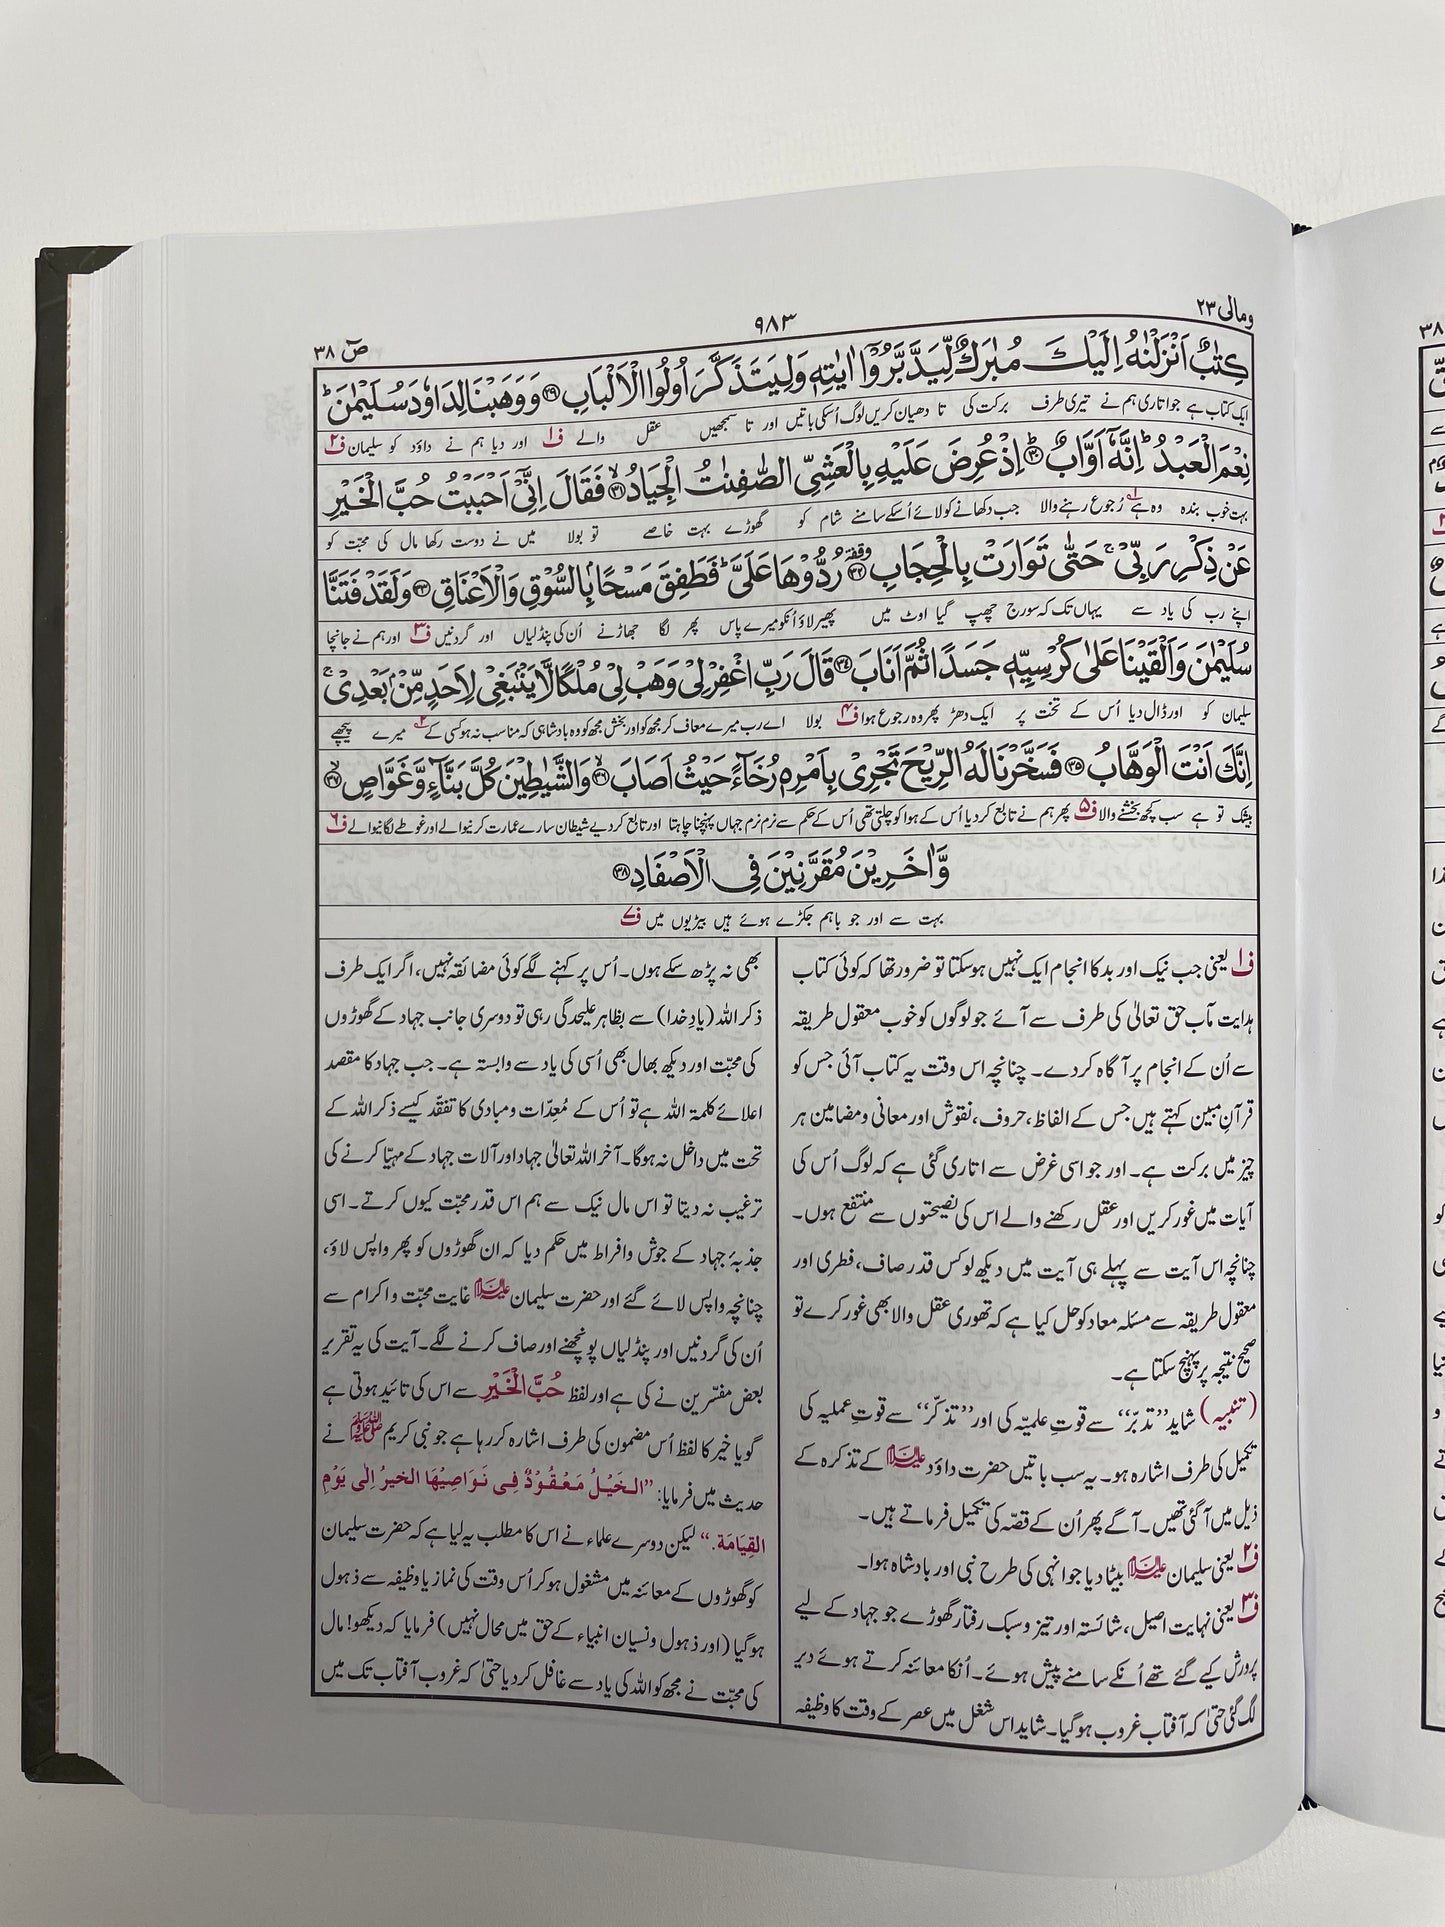 ومالی ۲۳
۹۸۳
صٓ ۳۸
كِتٰبٌ اَنْزَلْنٰهُ اِلَيْكَ مُبٰرَكٌ لِّيَدَّبَّرُوْۤا اٰيٰتِهٖ وَلِيَتَذَكَّرَ اُولُوا الْاَلْبَابِ ۝۲۹ وَوَهَبْنَا لِدَاوٗدَ سُلَيْمٰنَ ؕ
ایک کتاب ہے جو اتاری ہم نے تیری طرف برکت کی تا دھیان کریں لوگ اُسکی باتیں اور تا سمجھیں عقل والے ف۱ اور دیا ہم نے داؤد کو سلیمان ف۲
نِعْمَ الْعَبْدُ ؕ اِنَّهٗۤ اَوَّابٌ ۝۳۰ اِذْ عُرِضَ عَلَيْهِ بِالْعَشِيِّ الصّٰفِنٰتُ الْجِيَادُ ۝۳۱ فَقَالَ اِنِّيْۤ اَحْبَبْتُ حُبَّ الْخَيْرِ
بہت خوب بندہ وہ ہے۱ رُجوع رہنے والا جب دکھانے کو لائے اُسکے سامنے شام کو گھوڑے بہت خاصے تو بولا میں نے دوست رکھا مال کی محبّت کو
عَنْ ذِكْرِ رَبِّيْ ۚ حَتّٰى تَوَارَتْ بِالْحِجَابِ ۝۳۲ وقفة رُدُّوْهَا عَلَيَّ ؕ فَطَفِقَ مَسْحًۢا بِالسُّوْقِ وَالْاَعْنَاقِ ۝۳۳ وَلَقَدْ فَتَنَّا
اپنے رب کی یاد سے یہاں تک کہ سورج چھپ گیا اوٹ میں پھیر لاؤ اُنکو میرے پاس پھر لگا جھاڑنے اُن کی پنڈلیاں اور گردنیں ف۳ اور ہم نے جانچا
سُلَيْمٰنَ وَاَلْقَيْنَا عَلٰى كُرْسِيِّهٖ جَسَدًا ثُمَّ اَنَابَ ۝۳۴ قَالَ رَبِّ اغْفِرْ لِيْ وَهَبْ لِيْ مُلْكًا لَّا يَنْۢبَغِيْ لِاَحَدٍ مِّنْۢ بَعْدِيْ ۚ
سلیمان کو اور ڈال دیا اُس کے تخت پر ایک دھڑ پھر وہ رجوع ہوا ف۴ بولا اے رب میرے معاف کر مجھ کو اور بخش مجھ کو وہ بادشاہی کہ مناسب نہ ہو کسی کے۲ میرے پیچھے
اِنَّكَ اَنْتَ الْوَهَّابُ ۝۳۵ فَسَخَّرْنَا لَهُ الرِّيْحَ تَجْرِيْ بِاَمْرِهٖ رُخَآءً حَيْثُ اَصَابَ ۝۳۶ وَالشَّيٰطِيْنَ كُلَّ بَنَّآءٍ وَّغَوَّاصٍ ۝۳۷
بیشک تو ہے سب کچھ بخشنے والا ف۵ پھر ہم نے تابع کر دیا اُس کے ہوا کو چلتی تھی اُس کے حکم سے نرم نرم جہاں پہنچنا چاہتا اور تابع کر دیے شیطان سارے عمارت کرنیوالے اور غوطے لگانیوالے ف۶
وَّاٰخَرِيْنَ مُقَرَّنِيْنَ فِي الْاَصْفَادِ ۝۳۸
بہت سے اور جو باہم جکڑے ہوئے ہیں بیڑیوں میں ف۷
ف۱ یعنی جب نیک اور بد کا انجام ایک نہیں ہو سکتا تو ضرور تھا کہ کوئی کتاب
ہدایت مآب حق تعالیٰ کی طرف سے آئے جو لوگوں کو خوب معقول طریقہ
سے اُن کے انجام پر آگاہ کر دے۔ چنانچہ اس وقت یہ کتاب آئی جس کو
قرآنِ مبین کہتے ہیں جس کے الفاظ، حروف، نقوش اور معانی و مضامین ہر
چیز میں برکت ہے۔ اور جو اسی غرض سے اتاری گئی ہے کہ لوگ اُس کی
آیات میں غور کریں اور عقل رکھنے والے اس کی نصیحتوں سے منتفع ہوں۔
چنانچہ اس آیت سے پہلے ہی آیت میں دیکھ لو کس قدر صاف، فطری اور
معقول طریقہ سے مسئلہ معاد کو حل کیا ہے کہ تھوڑی عقل والا بھی غور کرے تو
صحیح نتیجہ پر پہنچ سکتا ہے۔
(تنبیہ) شاید ’’تدبّر‘‘ سے قوتِ علمیّہ کی اور ’’تذکّر‘‘ سے قوتِ عملیہ کی
تکمیل کی طرف اشارہ ہو۔ یہ سب باتیں حضرت داؤد علیہ السلام کے تذکرہ کے
ذیل میں آ گئی تھیں۔ آگے پھر اُن کے قصّہ کی تکمیل فرماتے ہیں۔
ف۲ یعنی سلیمان علیہ السلام بیٹا دیا جو انہی کی طرح نبی اور بادشاہ ہوا۔
ف۳ یعنی نہایت اصیل، شائستہ اور تیز و سبک رفتار گھوڑے جو جہاد کے لیے
پرورش کیے گئے تھے اُنکے سامنے پیش ہوئے۔ اُنکا معائنہ کرتے ہوئے دیر
لگ گئی حتیٰ کہ آفتاب غروب ہو گیا۔ شاید اس شغل میں عصر کے وقت کا وظیفہ
بھی نہ پڑھ سکے ہوں۔ اُس پر کہنے لگے کوئی مضائقہ نہیں، اگر ایک طرف
ذکر اللہ (یادِ خدا) سے بظاہر علیحدگی رہی تو دوسری جانب جہاد کے گھوڑوں
کی محبّت اور دیکھ بھال بھی اُسی کی یاد سے وابستہ ہے۔ جب جہاد کا مقصد
اعلائے کلمۃ اللہ ہے تو اُس کے مُعِدّات و مبادی کا تفقّد کیسے ذکر اللہ کے
تحت میں داخل نہ ہوگا۔ آخر اللہ تعالیٰ جہاد اور آلات جہاد کے مہیّا کرنے کی
ترغیب نہ دیتا تو اس مال نیک سے ہم اس قدر محبّت کیوں کرتے۔ اسی
جذبۂ جہاد کے جوش و افراط میں حکم دیا کہ ان گھوڑوں کو پھر واپس لاؤ،
چنانچہ واپس لائے گئے اور حضرت سلیمان علیہ السلام غایت محبّت و اکرام سے
اُن کی گردنیں اور پنڈلیاں پونچھنے اور صاف کرنے لگے۔ آیت کی یہ تقریر
بعض مفسّرین نے کی ہے اور لفظ حُبَّ الْخَيْرِ سے اس کی تائید ہوتی ہے
گویا خیر کا لفظ اُس مضمون کی طرف اشارہ کر رہا ہے جو نبی کریم ﷺ نے
حدیث میں فرمایا: ”الـخَيْلُ مَـعْـقُـوْدٌ فِـى نَـوَاصِيْهَا الـخيرُ اِلٰى يَوْمِ
القِيَامَة.“ لیکن دوسرے علماء نے اس کا مطلب یہ لیا ہے کہ حضرت سلیمان
کو گھوڑوں کے معائنہ میں مشغول ہو کر اُس وقت کی نماز یا وظیفہ سے ذہول
ہو گیا (اور ذہول و نسیان انبیاء کے حق میں محال نہیں) فرمایا کہ دیکھو! مال
کی محبّت نے مجھ کو اللہ کی یاد سے غافل کر دیا حتیٰ کہ غروب آفتاب تک میں